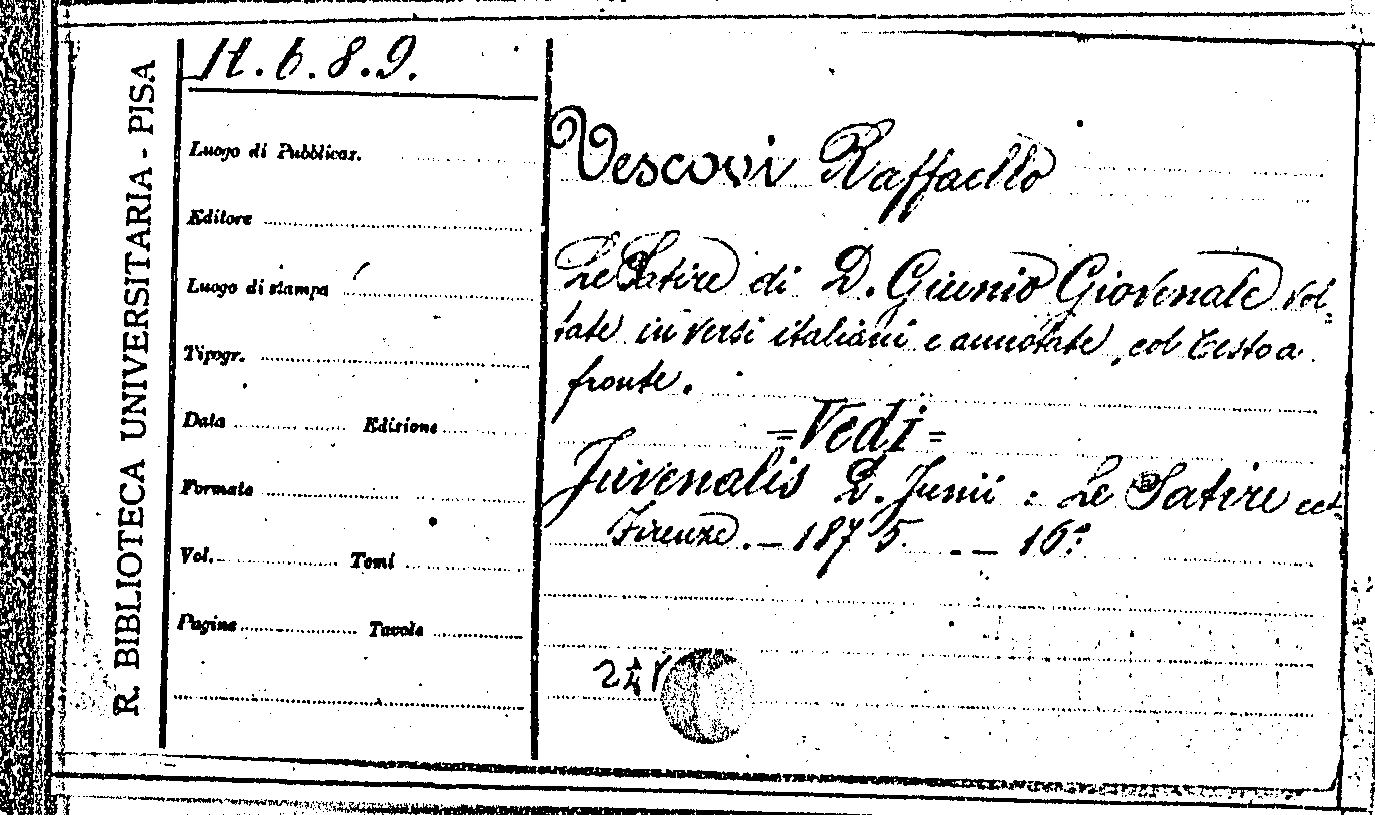 R. BIBLIOTECA UNIVERSITARIA - PISA
H. b. 8. 9.
Luogo di Pubblicaz.
Editore
Luogo di stampa
Tipogr.
Data Edizione
Formato
Vol. Tomi
Pagine Tavole
Vescovi Raffaello
Le Satire di D. Giunio Giovenale vol-
tate in versi italiani e annotate, col testo a
fronte.
=Vedi=
Juvenalis D. Junii : Le Satire ect.
Firenze. - 1875. - 16º